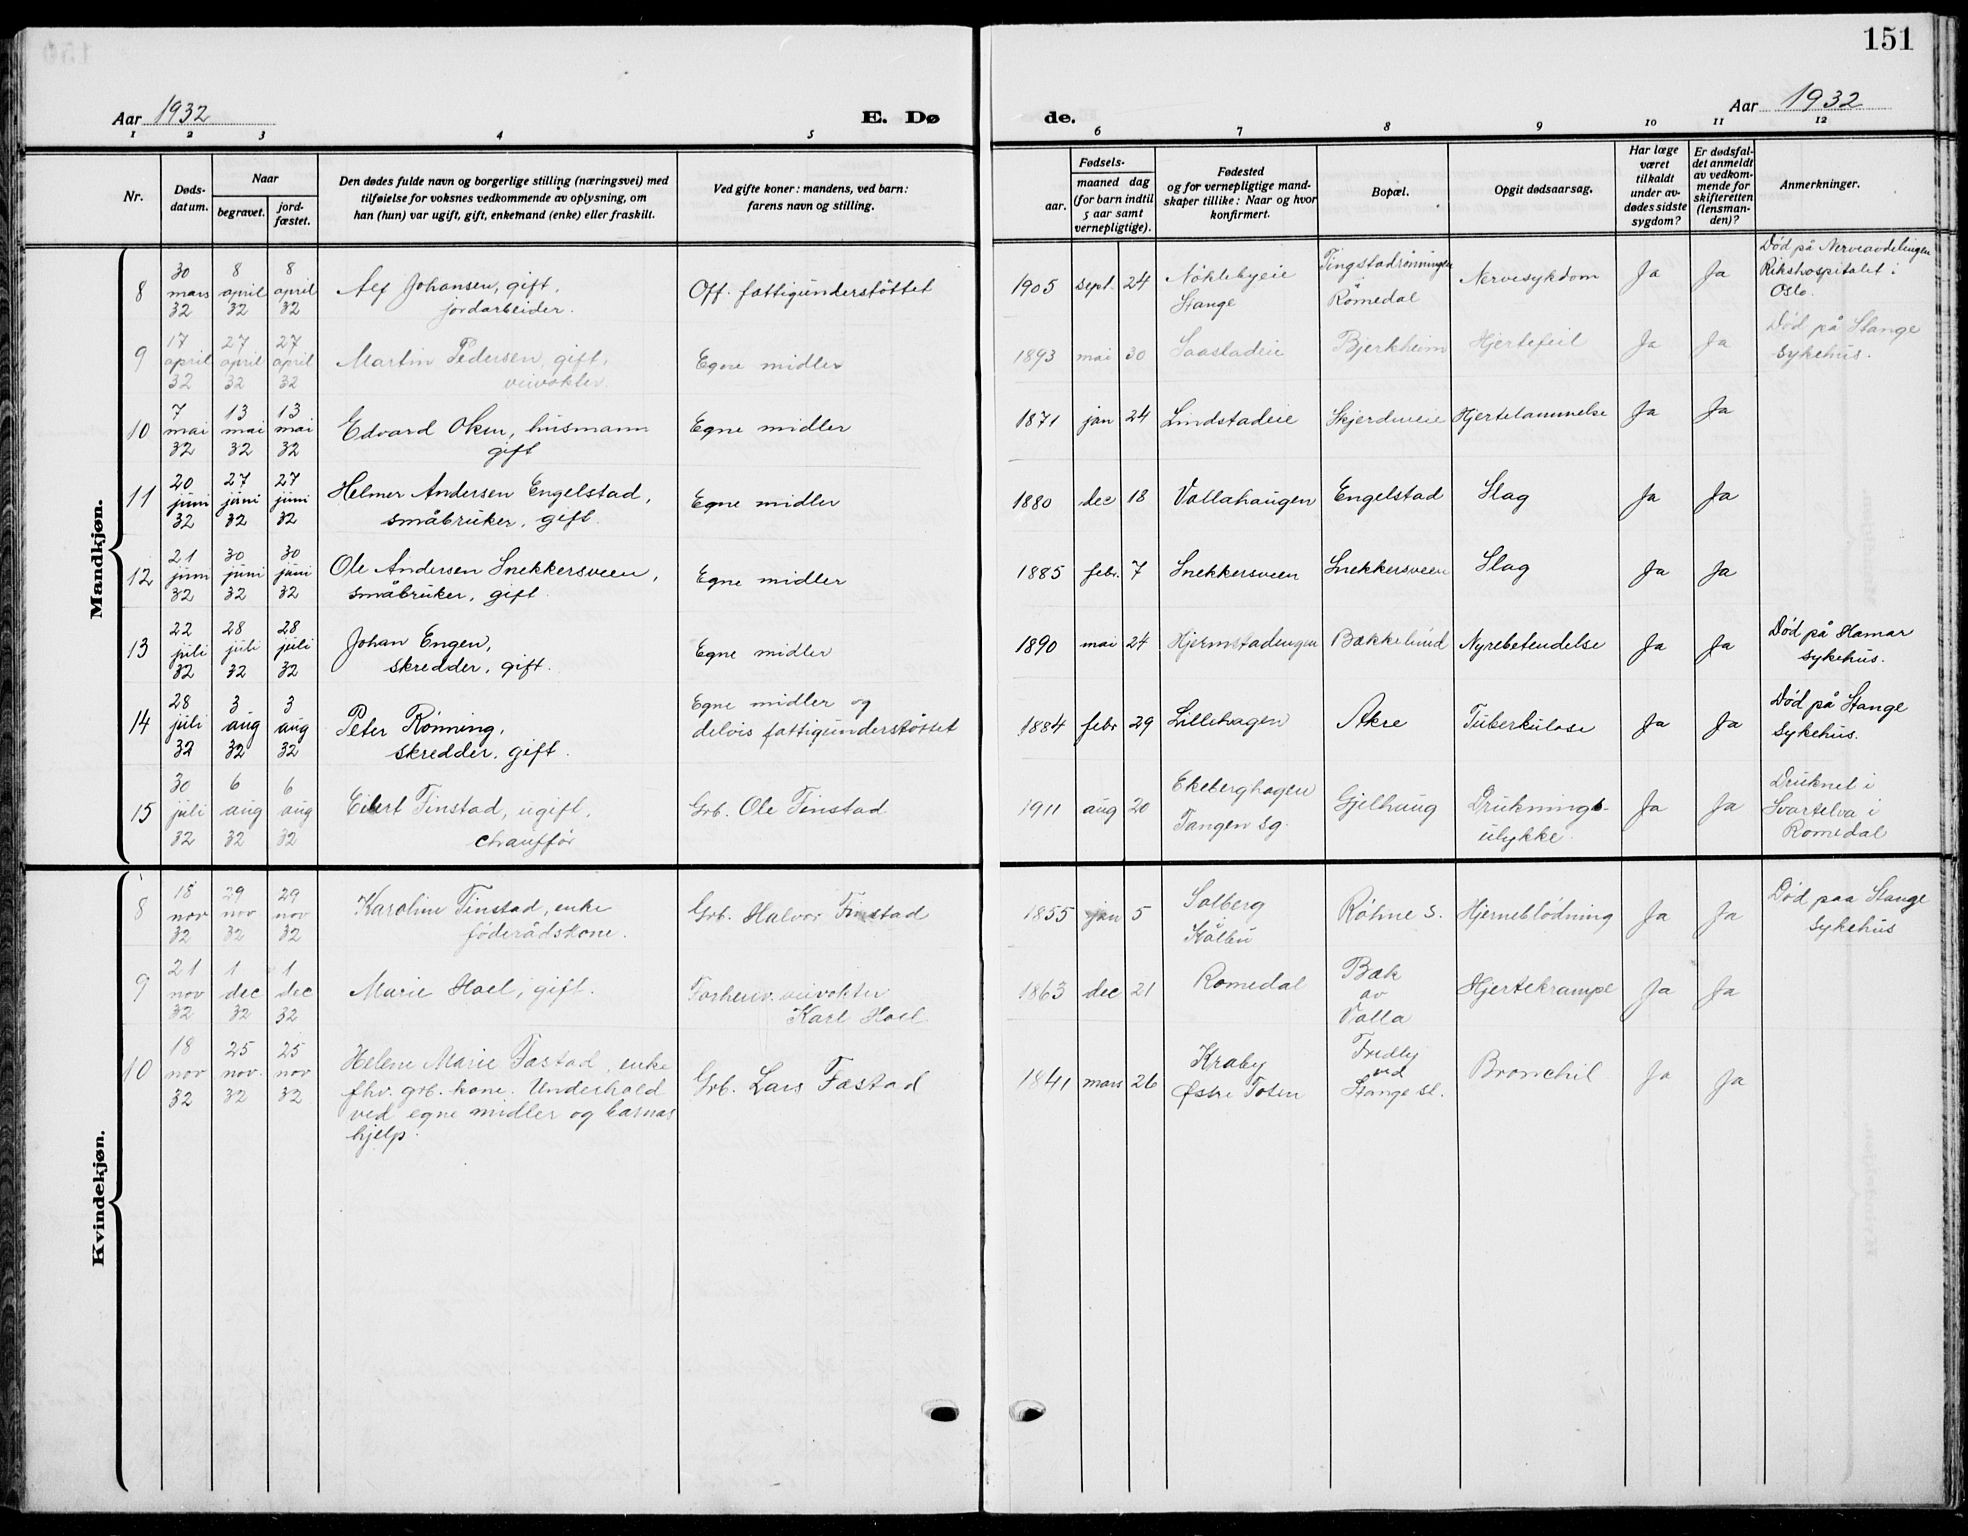 151
Aar 1932
E. Dø
de.
Aar 1932
1 2 3 4 5 6 7 8 9 10 11 12
Nr.
Døds-
datum.
Naar
begravet.
jord-
fæstet.
Den dødes fulde navn og borgerlige stilling (næringsvei) med
tilføielse for voksnes vedkommende av oplysning, om
han (hun) var ugift, gift, enkemand (enke) eller fraskilt.
Ved gifte koner: mandens, ved barn:
farens navn og stilling.
Fødsels-
aar.
maaned dag
(for barn indtil
5 aar samt
vernepligtige).
Fødested
og for vernepligtige mand-
skaper tillike: Naar og hvor
konfirmert.
Bopæl.
Opgit dødsaarsag.
Har læge
været
tilkaldt
under av-
dødes sidste
sygdom?
Er dødsfal-
det anmeldt
av vedkom-
mende for
skifteretten
(lensman-
den)?
Anmerkninger.
Mandkjøn.
8
30
mars
32
8
april
32
8
april
32
Alf Johansen, gift,
jordarbeider.
Off. fattigunderstøttet
1905 sept. 24
Nøklebyeie
Stange
Tingstadrønningen
Romedal
Nervesykdom
Ja
Ja
Død på Nerveavdelingen
Rikshospitalet i
Oslo.
9
17
april
32
27
april
32
27
april
32
Martin Pedersen, gift,
veivokter.
Egne midler
1893 mai 30
Saastadeie
Bjerkheim
Hjertefeil
Ja
Ja
Død på Stange
sykehus.
10
7
mai
32
13
mai
32
13
mai
32
Edvard Olsen, husmann
gift
Egne midler
1871 jan 24
Lindstadeie
Skjerdneie
Hjertelammelse
Ja
Ja
11
20
juni
32
27
juni
32
27
juni
32
Helmer Andersen Engelstad,
småbruker, gift.
Egne midler
1880 dec 18
Vallahaugen
Engelstad
Slag
Ja
Ja
12
21
juni
32
30
juni
32
30
juni
32
Ole Andersen Snekkersveen,
småbruker, gift.
Egne midler
1885 febr. 7
Snekkersveen
Snekkersveen
Slag
Ja
Ja
13
22
juli
32
28
juli
32
28
juli
32
Johan Engen,
skredder, gift.
Egne midler
1890 mai 24
Hjermstadengen
Bakkelund
Nyrebetendelse
Ja
Ja
Død på Hamar
sykehus.
14
28
juli
32
3
aug
32
3
aug
32
Peter Rønning,
skredder, gift.
Egne midler og
delvis fattigunderstøttet
1884 febr 29
Lillehagen
Akre
Tuberkulose
Ja
Ja
Død på Stange
sykehus.
15
30
juli
32
6
aug
32
6
aug
32
Eilert Finstad, ugift,
chauffør
Grb. Ole Finstad
1911 aug 20
Ekeberghagen
Tangen sg.
Gjelhaug
Druknings-
ulykke.
Ja
Ja
Druknet i
Svartelva i
Romedal
Kvindekjøn.
8
18
nov
32
29
nov
32
29
nov
32
Karoline Finstad, enke
føderådskone.
Grb. Halvor Finstad
1855 jan 5
Solberg
Kålbu
Røhne s.
Hjerneblødning
Ja
Ja
Død paa Stange
sykehus
9
21
nov
32
1
dec
32
1
dec
32
Marie Hoel, gift.
Forhenv. veivokter
Karl Hoel
1863 dec 21
Romedal
Bæk
av
Valla
Hjertekrampe
Ja
Ja
10
18
nov
32
25
nov.
32
25
nov
32
Helene Marie Fæstad, enke
fhv. grb. kone. Underhold
ved egne midler og barnas
hjelp.
Grb. Lars Fæstad
1841 mars 26
Kraby
Østre Toten
Fredly
ved
Stange st.
Bronchit
Ja
Ja